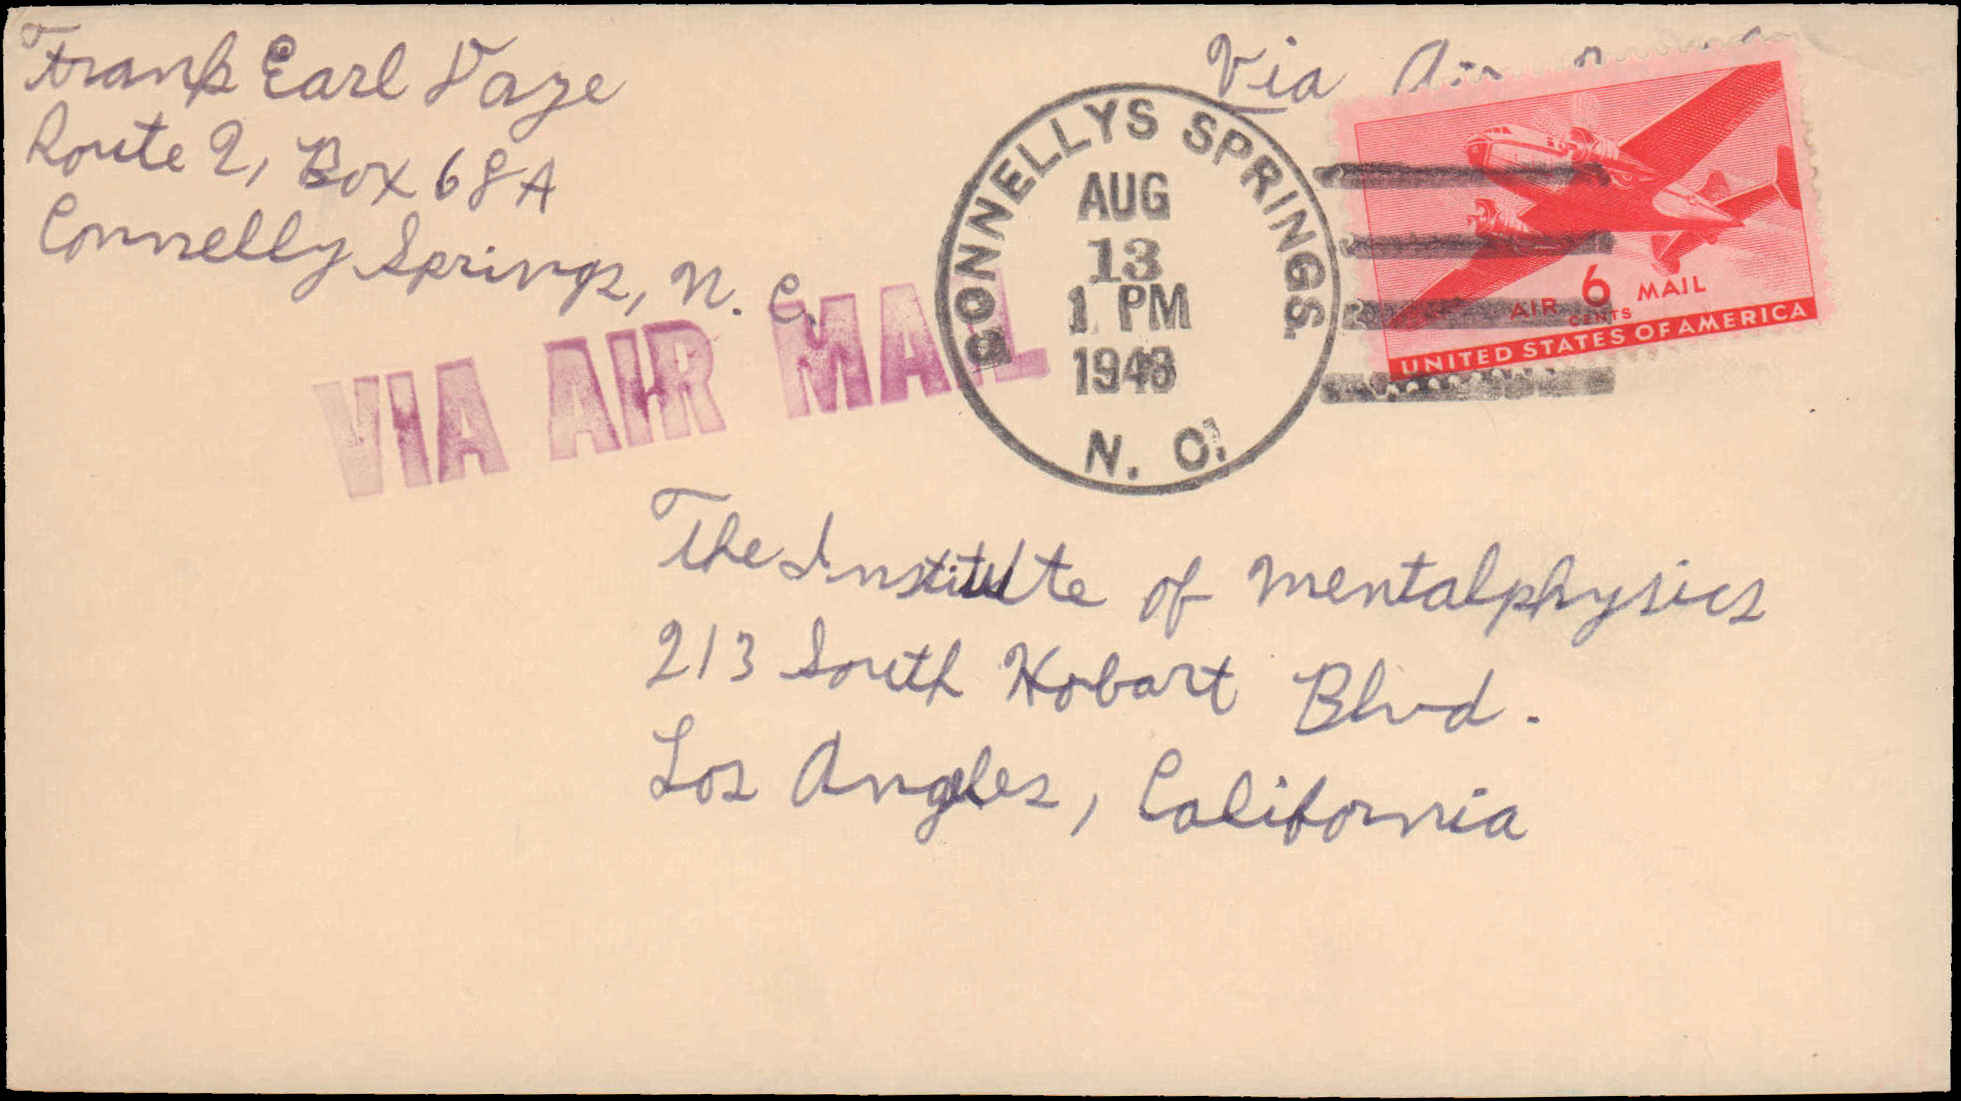 Frank Earl Vaze
Route 2, Box 68A
Connelly Springs, N. C.
Via Air
VIA AIR MAIL
CONNELLYS SPRINGS.
AUG
13
1 PM
1948
N. C.
AIR 6 MAIL
CENTS
UNITED STATES OF AMERICA
The Institute of Mentalphysics
213 South Hobart Blvd.
Los Angeles, California